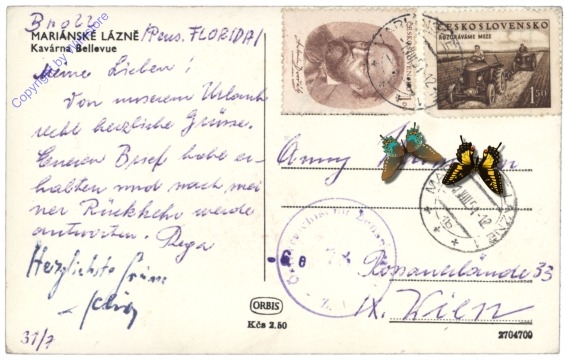 MARIÁNSKÉ LÁZNĚ /Pens. FLORIDA/
Kavárna Bellevue
Meine Lieben!
Von unserem Urlaub
recht herzliche Grüsse.
Eueren Brief habe er-
halten und nach mei
ner Rückkehr werde
antworten.
Herzlichste Grüsse
31/7
ČESKOSLOVENSKO
ROZORÁVÁME MEZE
1.50
Anny
Rossauerlände 33
IX. Wien
ORBIS
Kčs 2.50
2704709
Copyright by